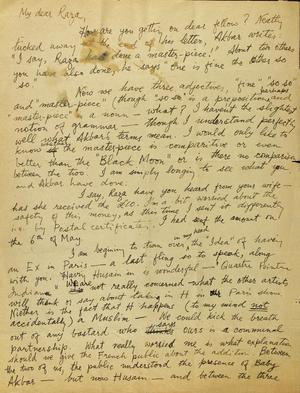 My dear Raza,
How are you getting on dear fellow? Neatly
tucked away at the end of her letter, Akbar writes,
"I say, Raza has done a master-piece!" About the other
you have also done, he says "One is fine the other so
so"
Now we have three adjective, "fine" "so so"
and "master-piece" (though "so so" is a preposition, perhaps and
master-piece" a noun — what? I haven't the slightest
notion of grammar — though I understand perfectly
well what Akbar's terms mean. I would only like to
know is the master-piece is comparitive or even
better than the "Black Moon" or is there no comparison
between the two. I am simply longing to see what you
and Akbar have done.
I say Raza have you heard from your wife —
has she received the M.O. I'm a bit worried about the
safety of this money, as this time I sent it different-
i.e. by Postal certificate. I had sent the amount on
the 6th of May.
I am beginning to turn over the "Idea" of having
an Ex in Paris — a last fling so to speak, along
with you. Harry Husain is in wonderful — "Quatre Peintre
Indiens". We are not really concerned what the other artists
will think or say about taking H in the Paris show
Niether is the fact that H happens (to my mind not
accidentally) a Muslim. We could kick the breath
out of any bastard who says ours is a communal
partnership. What really worried me is what explanation
should we give the French public about the addition. Between
the two of us, the public understood the presence of Baby
Akbar — but now Husain — and between the three